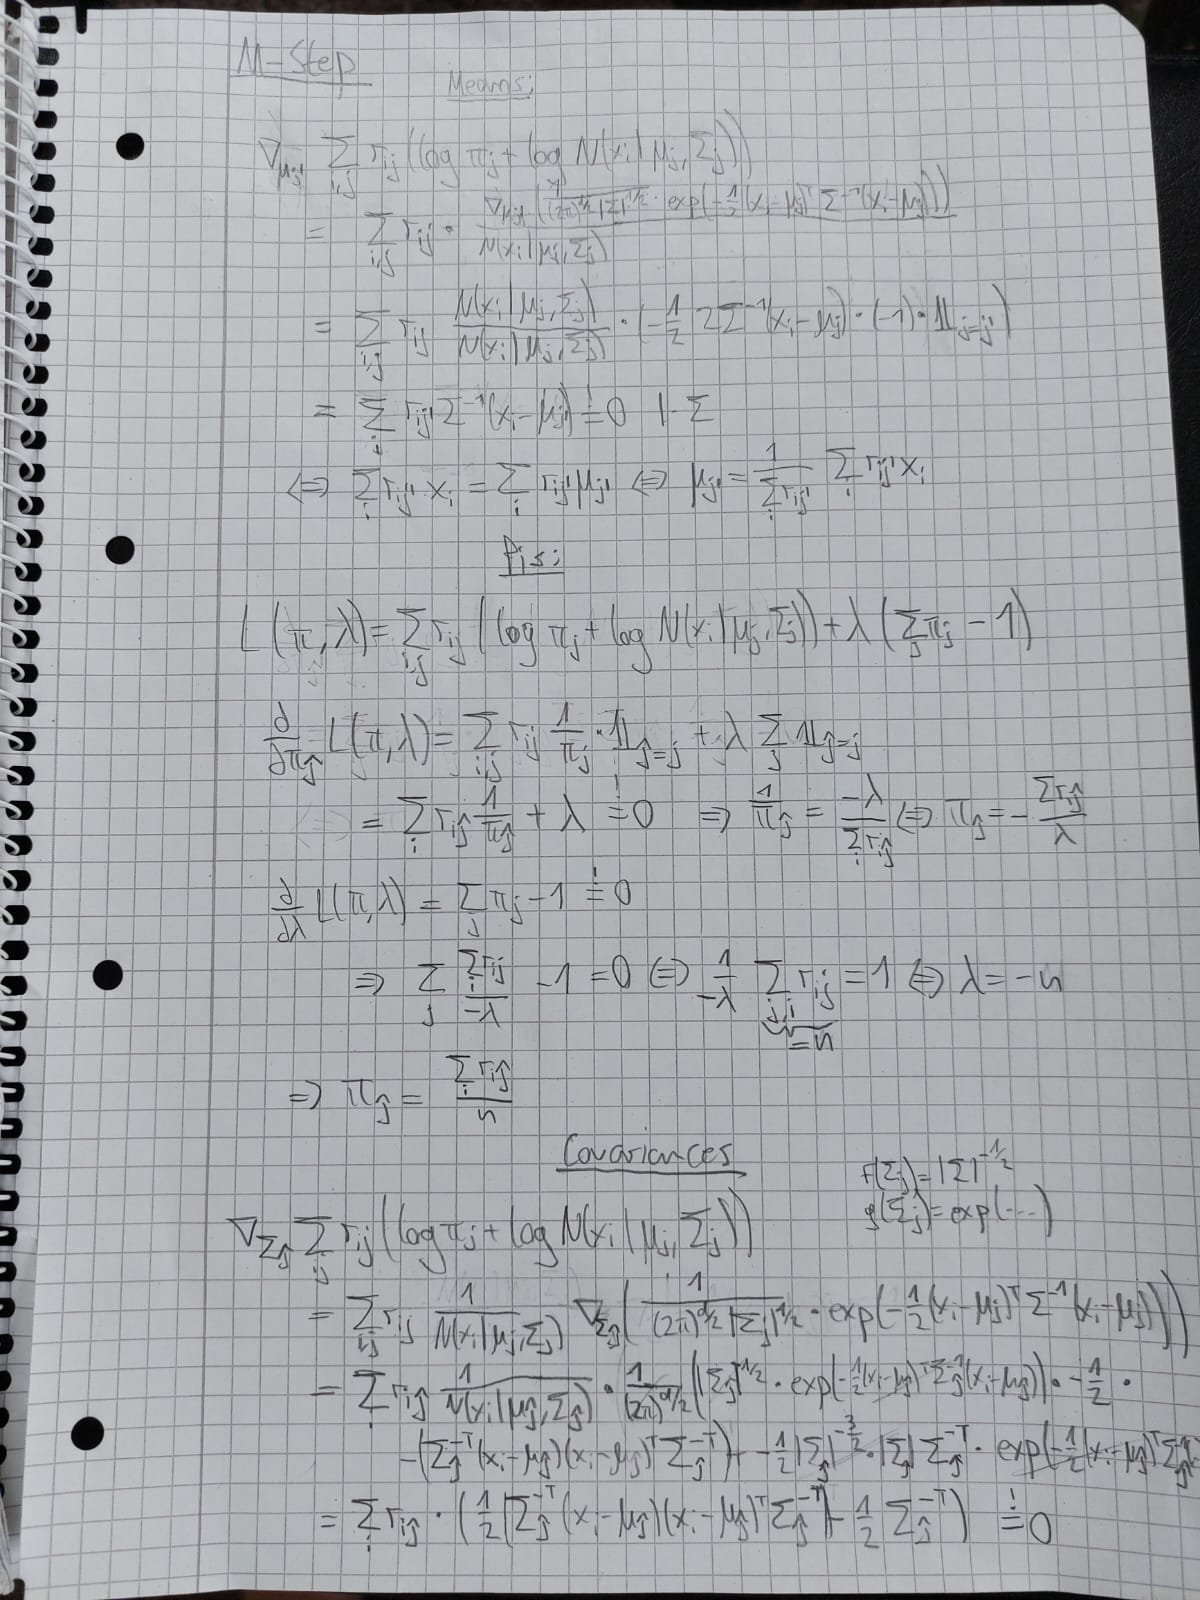 M-Step
Means:
∇_{μ_j'} Σ_{ij} r_ij (log π_j + log N(x_i | μ_j, Σ_j))
= Σ_{ij} r_ij · ∇_{μ_j'} (1/((2π)^{d/2} |Σ|^{1/2}) · exp(-1/2 (x_i - μ_j)^T Σ^{-1} (x_i - μ_j))) / N(x_i | μ_j, Σ_j)
= Σ_{ij} r_ij N(x_i | μ_j, Σ_j) / N(x_i | μ_j, Σ_j) · (-1/2 2Σ^{-1}(x_i - μ_j) · (-1) · 𝟙_{j=j'})
= Σ_i r_ij' Σ^{-1}(x_i - μ_j') =! 0 | · Σ
⇔ Σ_i r_ij' x_i = Σ_i r_ij' μ_j' ⇔ μ_j' = 1/(Σ_i r_ij') Σ_i r_ij' x_i
Pis:
L(π, λ) = Σ_{ij} r_ij (log π_j + log N(x_i | μ_j, Σ_j)) + λ (Σ_j π_j - 1)
∂/∂π_ĵ L(π, λ) = Σ_{ij} r_ij 1/π_j · 𝟙_{ĵ=j} + λ Σ_j 𝟙_{ĵ=j}
= Σ_i r_iĵ 1/π_ĵ + λ =! 0 ⇒ 1/π_ĵ = -λ/(Σ_i r_iĵ) ⇔ π_ĵ = - Σ r_iĵ / λ
∂/∂λ L(π, λ) = Σ_j π_j - 1 =! 0
⇒ Σ_j (Σ_i r_ij)/(-λ) - 1 = 0 ⇔ 1/(-λ) Σ_{j,i} r_ij = 1 ⇔ λ = -n
= n
⇒ π_ĵ = (Σ_i r_iĵ)/n
Covariances
f(Σ_j) = |Σ|^{-1/2}
g(Σ_j) = exp(...)
∇_{Σ_ĵ} Σ_{ij} r_ij (log π_j + log N(x_i | μ_j, Σ_j))
= Σ_{ij} r_ij 1/N(x_i | μ_j, Σ_j) ∇_{Σ_ĵ} (1/((2π)^{d/2} |Σ_j|^{1/2}) · exp(-1/2 (x_i - μ_j)^T Σ^{-1} (x_i - μ_j)))
= Σ_i r_iĵ 1/N(x_i | μ_ĵ, Σ_ĵ) · 1/(2π)^{d/2} (|Σ_ĵ|^{-1/2} · exp(-1/2 (x_i - μ_ĵ)^T Σ_ĵ^{-1} (x_i - μ_ĵ)) · -1/2 ·
-(Σ_ĵ^{-T} (x_i - μ_ĵ)(x_i - μ_ĵ)^T Σ_ĵ^{-T}) + -1/2 |Σ_ĵ|^{-3/2} · |Σ_ĵ| Σ_ĵ^{-T} · exp(-1/2 (x_i - μ_ĵ)^T Σ_ĵ^{-1}
= Σ_i r_iĵ · (1/2 (Σ_ĵ^{-T} (x_i - μ_ĵ)(x_i - μ_ĵ)^T Σ_ĵ^{-T}) - 1/2 Σ_ĵ^{-T}) =! 0